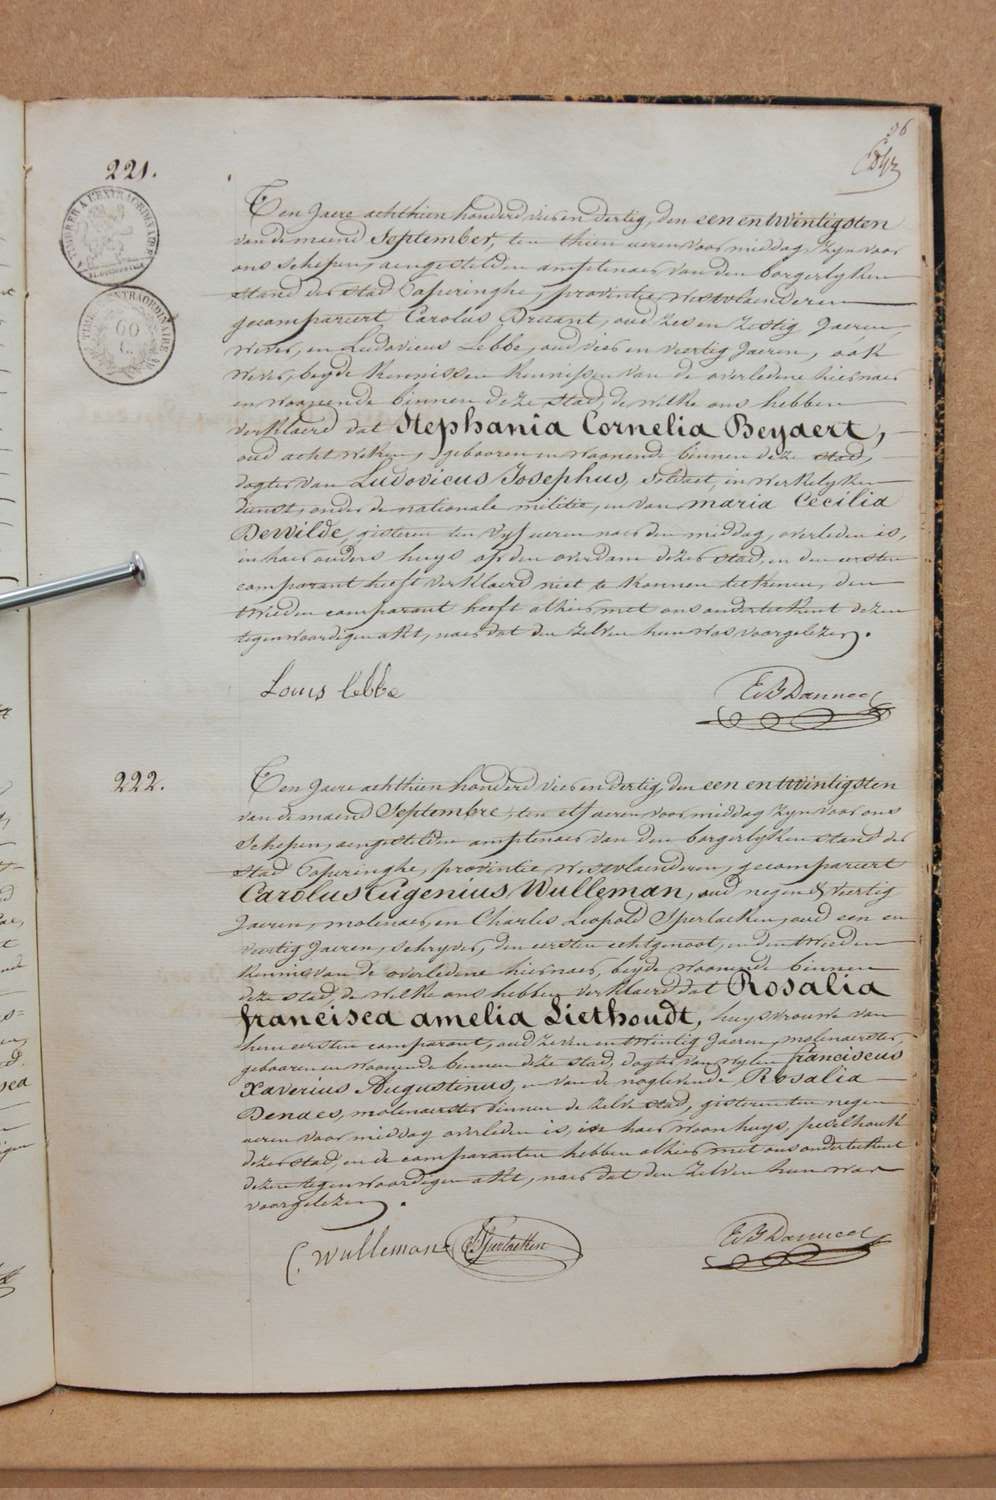 96
221.
TIMBRER A L'EXTRAORDINAIRE
60
C.
Ten Jaere achthien honderd vier en dertig, den een en twintigsten
van de maend September, ten thien ueren voor middag, zyn voor
ons schepen, aengestelden amptenaer van den borgerlyken
stand der stad Poperinghe, provintie westvlaenderen
gecompareert Carolus Bruant, oud zes en zestig Jaeren,
wever, en Ludovicus Lebbe, oud vier en veertig Jaeren, ook
wever, beyde kennissen kennissen van de overledene hiernaer
en woonende binnen deze stad, de welke ons hebben
verklaerd dat Stephania Cornelia Beyaert,
oud acht weken, gebooren en woonende binnen deze stad,
dogter van Ludovicus Josephus, soldaet, in werkelyken
dienst, onder de nationale militie, en van maria Cecilia
DeWilde, gisteren ten vyf ueren naer den middag, overleden is,
in haer ouders huys op den overdam dezer stad, en den eersten
comparant heeft verklaerd niet te konnen teekenen, den
tweeden comparant heeft alhier met ons onderteekent dezen
tegenwoordigen akt, naer dat den zelven hun was voorgelezen.
Louis Lebbe
222.
Ten Jaere achthien honderd vier en dertig den een en twintigsten
van de maend Septembre, ten elf ueren voor middag zyn voor ons
Schepen, aengestelden amptenaer van den borgerlyken stand der
stad Poperinghe, provintie westvlaenderen, gecompareert
Carolus Eugenius Wulleman, oud negen & veertig
Jaeren, molenaer, en Charles Leopold Sperlaeken, oud een en
veertig Jaeren, schryver, den eersten echtgenoot, en den tweeden
kennis van de overledene hiernaer, beyde woonende binnen
deze stad, de welke ons hebben verklaerd dat Rosalia
francisca amelia Liethoudt, huysvrouwe van
hunn eersten comparant, oud zeven en twintig Jaeren, molenaerster,
gebooren en woonende binnen deze stad, dogter van wylen franciscus
Xaverius Augustinus, en van de noglevende Rosalia
Denaes, molenaerster binnen de zelve stad, gisteren ten negen
ueren voor middag overleden is, in haer woonhuys, peselhoek
dezer stad, en de comparanten hebben alhier met ons onderteekent
dezen tegenwoordigen akt, naer dat den zelven hun was
voorgelezen.
C. Wulleman Sperlaeken